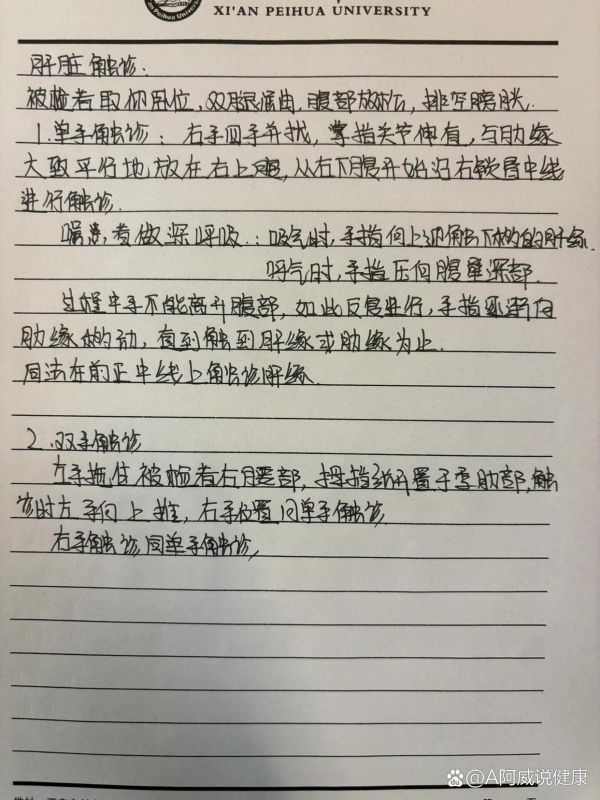 XI'AN PEIHUA UNIVERSITY
肝脏触诊:
被检者取仰卧位,双腿屈曲,腹部放松,排空膀胱.
1.单手触诊:右手四手并拢,掌指关节伸直,与肋缘
大致平行地放在右上腹,从右下腹开始沿右锁骨中线
进行触诊.
嘱患者做深呼吸.:吸气时,手指向上迎触下移的肝缘.
呼气时,手指压向腹壁深部.
过程中手不能离开腹部,如此反复进行,手指逐渐向
肋缘移动,直到触到肝缘或肋缘为止.
同法在前正中线上触诊肝缘.
2.双手触诊
左手托住被检者右腰部,拇指张开置于季肋部,触
诊时左手向上推,右手位置同单手触诊
右手触诊同单手触诊,
@A阿威说健康